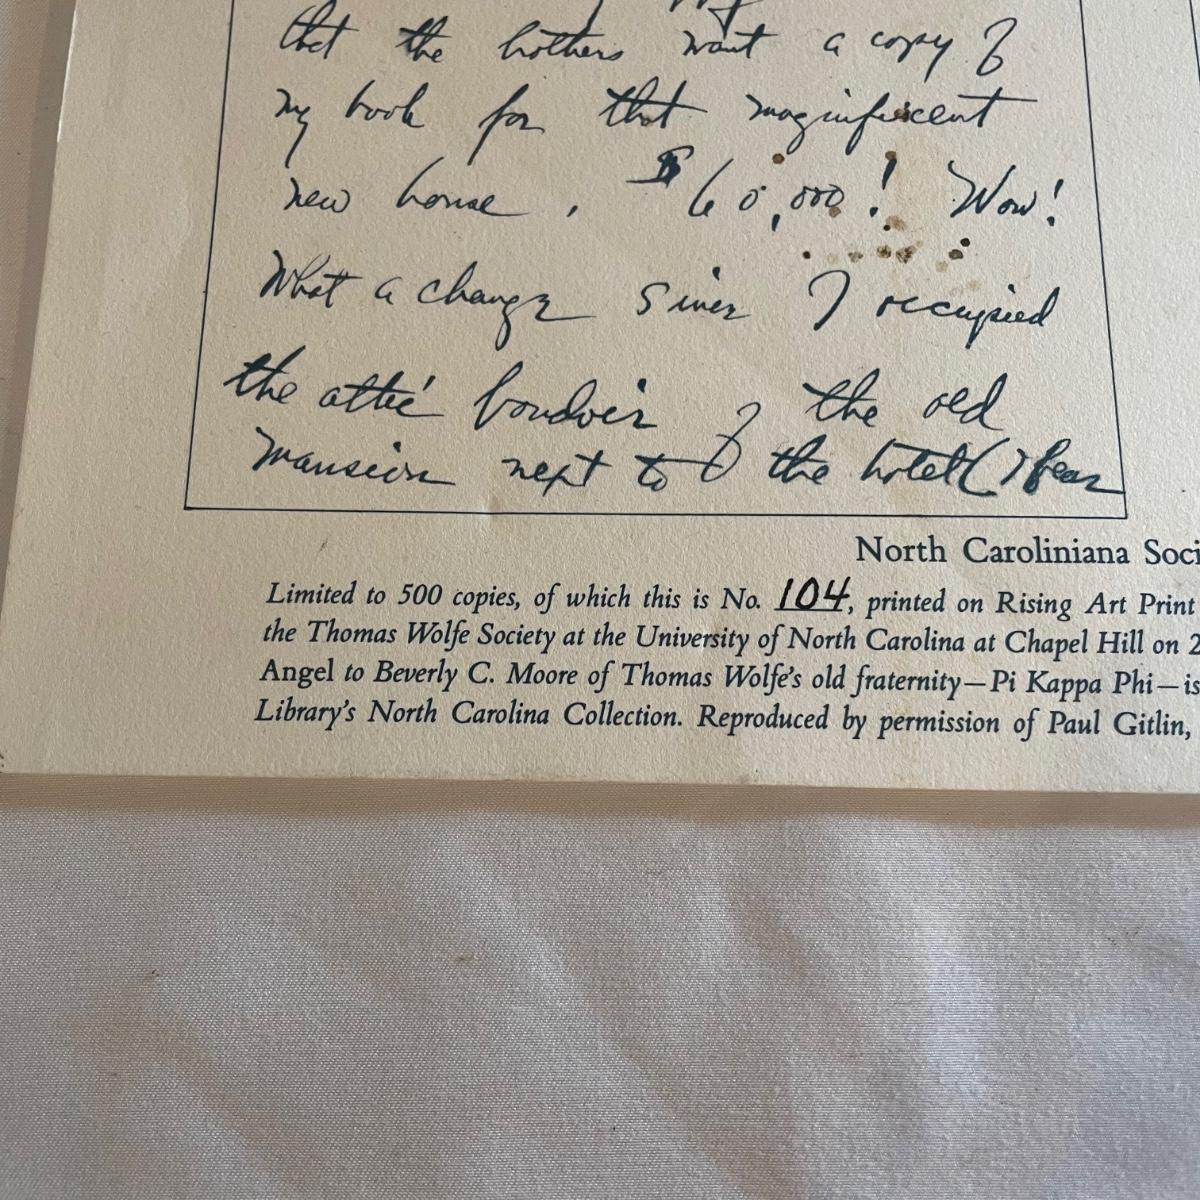 that the brothers want a copy of
my book for that magnificent
new house. $60,000! Wow!
What a change since I occupied
the attic boudoir of the old
mansion next to the hotel (I fear
North Caroliniana Soci
Limited to 500 copies, of which this is No. 104, printed on Rising Art Print
the Thomas Wolfe Society at the University of North Carolina at Chapel Hill on 2
Angel to Beverly C. Moore of Thomas Wolfe's old fraternity—Pi Kappa Phi—is
Library's North Carolina Collection. Reproduced by permission of Paul Gitlin,